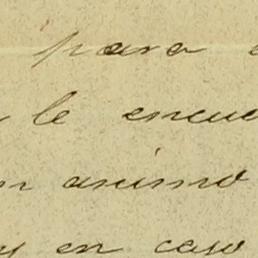 para
le encue
animo
y en caso